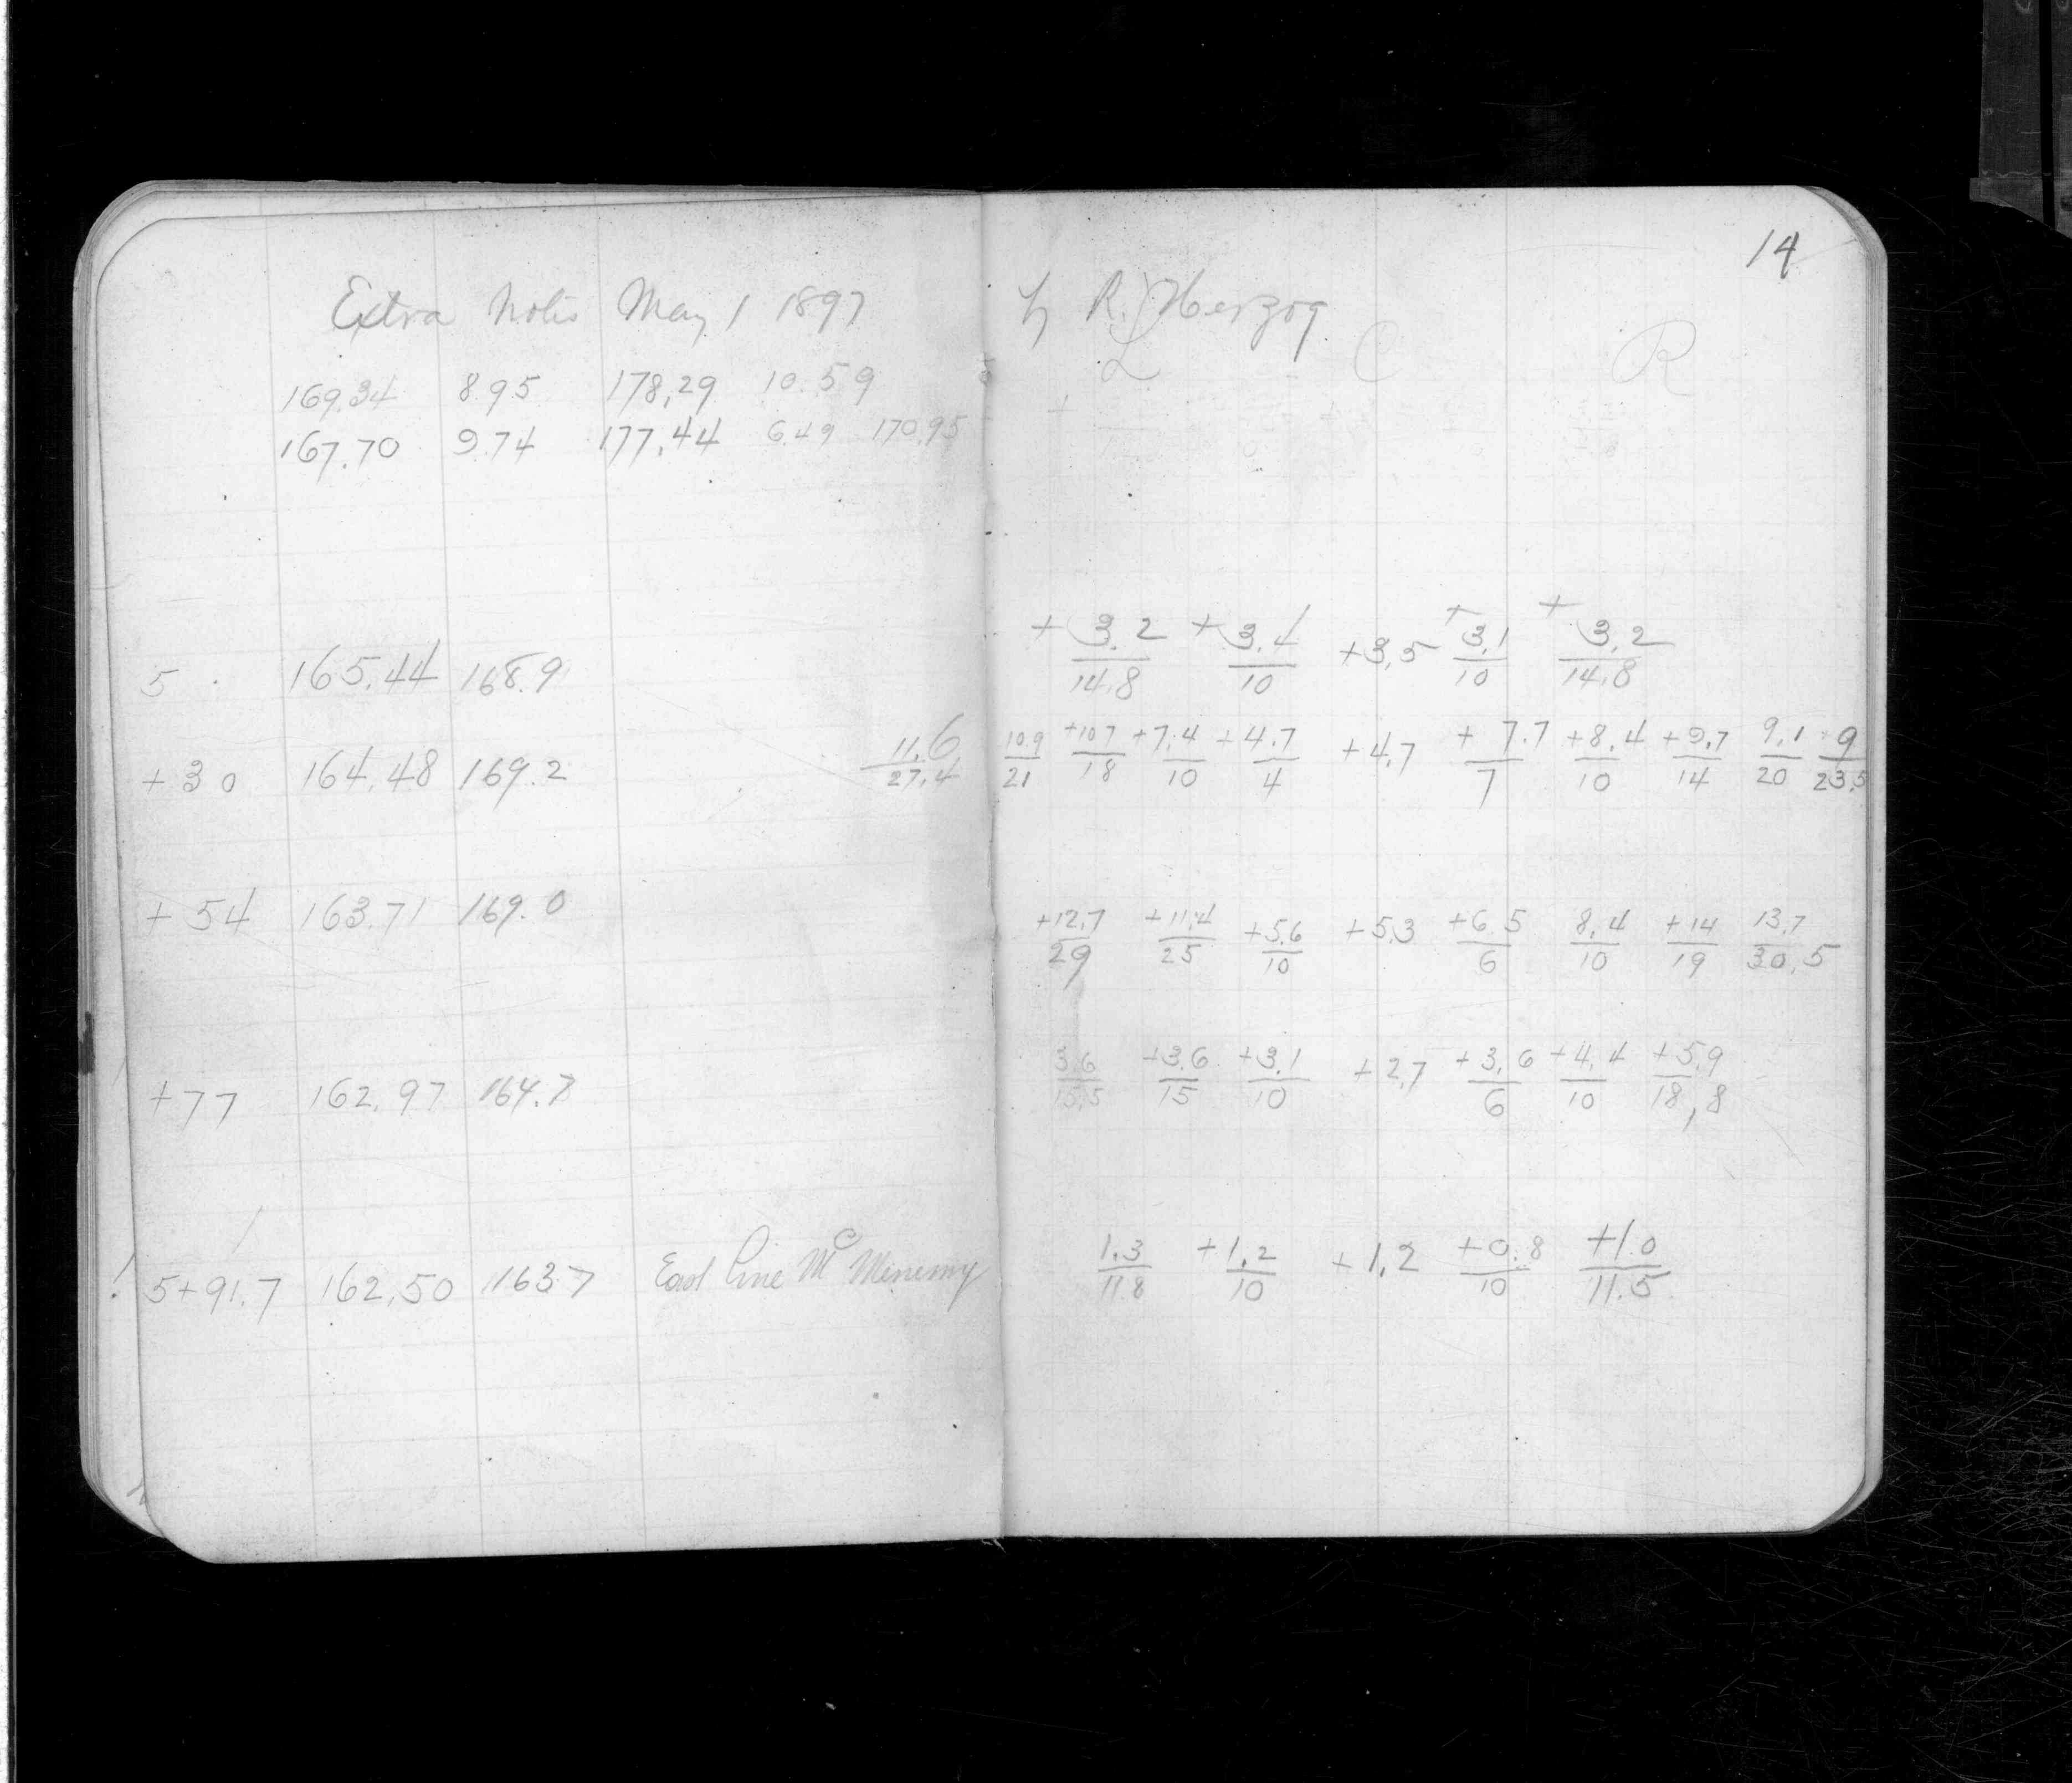 14
Extra Notes May 1 1897 by R. Herzog
L C R
169.34 8.95 178,29 10.59
167.70 9.74 177,44 6.49 170.95
5 165.44 168.9 +3.2/14.8 +3.4/10 +3,5 +3,1/10 +3,2/14,8
+30 164,48 169.2 11.6/27.4 10.9/21 +10.7/18 +7.4/10 +4.7/4 +4,7 +7.7/7 +8,4/10 +9,7/14 9,1/20 +9/23,5
+54 163.71 169.0 +12.7/29 +11.4/25 +5.6/10 +5.3 +6.5/6 8,4/10 +14/19 13,7/30,5
+77 162,97 164.7 3.6/15.5 +3.6/15 +3,1/10 +2,7 +3,6/6 +4,4/10 +5,9/18,8
5+91.7 162,50 163.7 East Line McMinemy 1.3/11.8 +1,2/10 +1,2 +0.8/10 +1.0/11.5